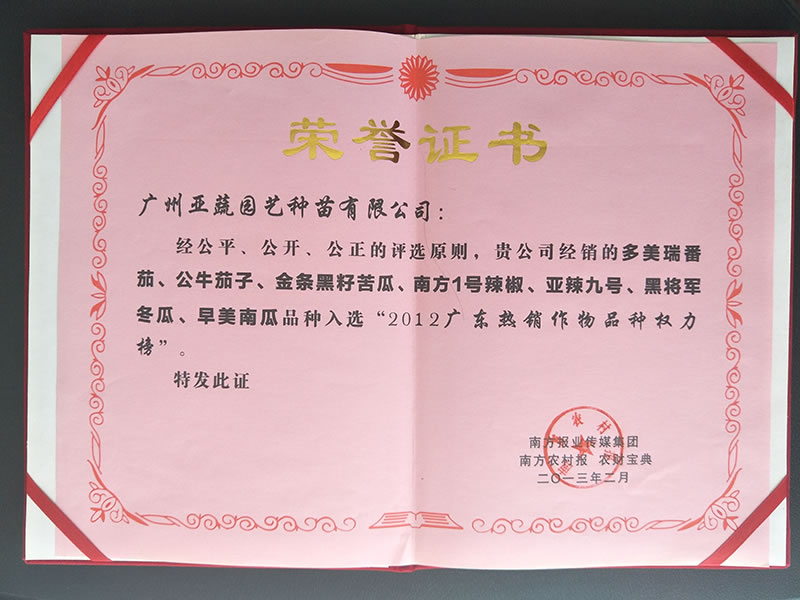 荣誉证书
广州亚蔬园艺种苗有限公司：
经公平、公开、公正的评选原则，贵公司经销的多美瑞番
茄、公牛茄子、金条黑籽苦瓜、南方1号辣椒、亚辣九号、黑将军
冬瓜、早美南瓜品种入选“2012广东热销作物品种权力
榜”。
特发此证
南方报业传媒集团
南方农村报 农财宝典
二〇一三年二月